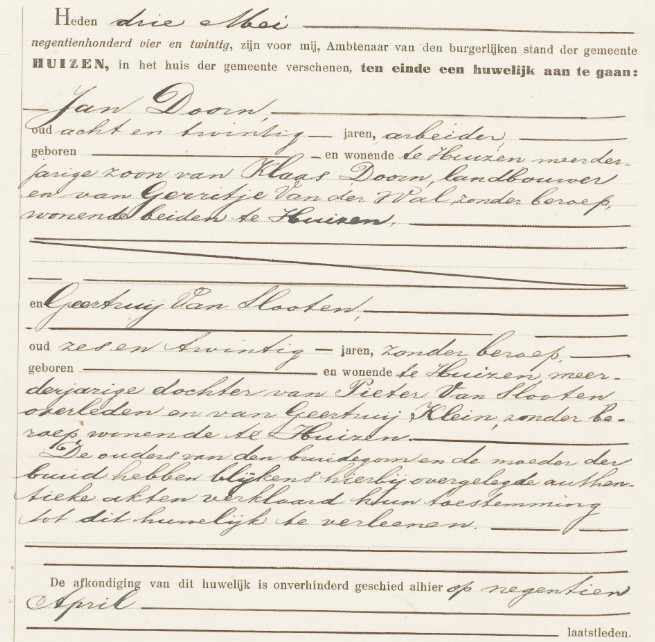 Heden drie Mei
negentienhonderd vier en twintig, zijn voor mij, Ambtenaar van den burgerlijken stand der gemeente
HUIZEN, in het huis der gemeente verschenen, ten einde een huwelijk aan te gaan:
Jan Doorn,
oud acht en twintig jaren, arbeider,
geboren en wonende te Huizen meerder-
jarige zoon van Klaas Doorn, landbouwer
en van Gerritje Van der Wal, zonder beroep,
wonende beiden te Huizen.
en Geertruij Van Slooten,
oud zes en twintig jaren, zonder beroep,
geboren en wonende te Huizen, meer-
derjarige dochter van Pieter Van Slooten
overleden en van Geertruij Klein, zonder be-
roep, wonende te Huizen.
De ouders van den bruidegom en de moeder der
bruid hebben blijkens hierbij overgelegde authen-
tieke akten verklaard hun toestemming
tot dit huwelijk te verleenen.
De afkondiging van dit huwelijk is onverhinderd geschied alhier op negentien
April
laatstleden.